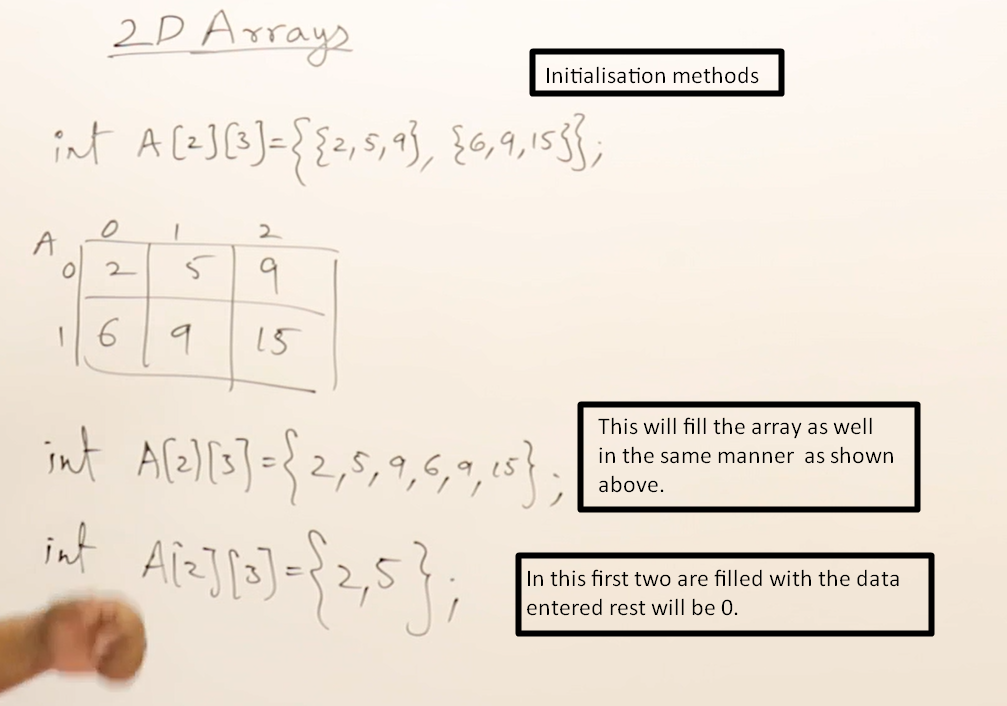 2D Arrays
Initialisation methods
int A[2][3]={{2,5,9}, {6,9,15}};
A 0 1 2
0 2 5 9
1 6 9 15
int A[2][3]={2,5,9,6,9,15};
This will fill the array as well
in the same manner as shown
above.
int A[2][3]={2,5};
In this first two are filled with the data
entered rest will be 0.